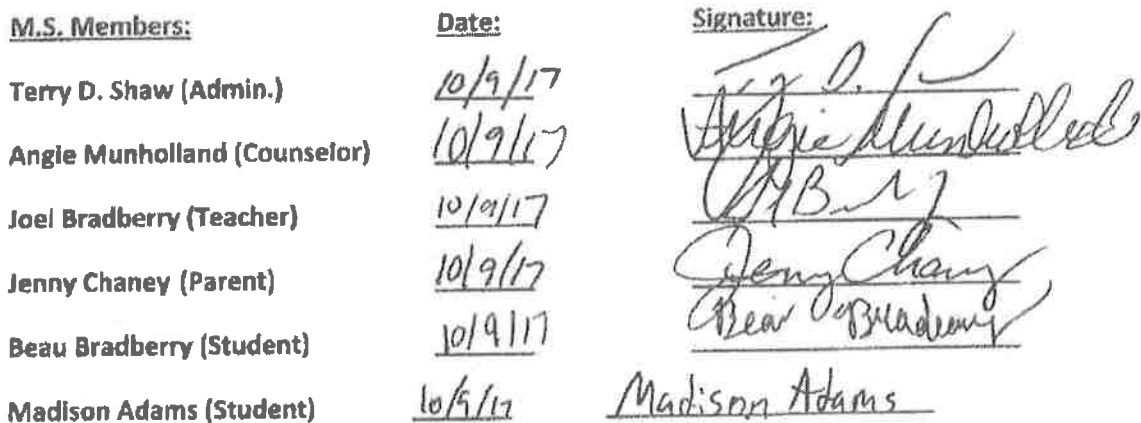 M.S. Members: Date: Signature:
Terry D. Shaw (Admin.) 10/9/17
Angie Munholland (Counselor) 10/9/17 Angie Munholland
Joel Bradberry (Teacher) 10/9/17
Jenny Chaney (Parent) 10/9/17 Jenny Chaney
Beau Bradberry (Student) 10/9/17 Beau Bradberry
Madison Adams (Student) 10/9/17 Madison Adams